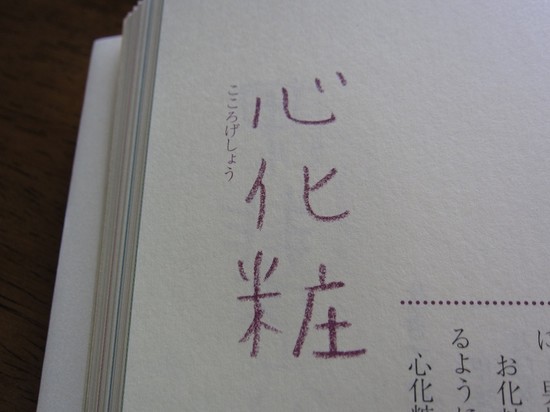 心化粧
こころげしょう
お化
るように
心化粧